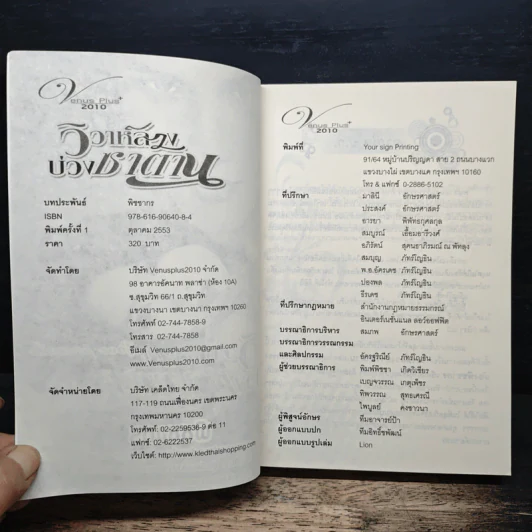 Venus Plus+
2010
วิวาห์ลวง
บ่วงซาตาน
บทประพันธ์ พิชชากร
ISBN 978-616-90640-8-4
พิมพ์ครั้งที่ 1 ตุลาคม 2553
ราคา 320 บาท
จัดทำโดย บริษัท Venusplus2010 จำกัด
98 อาคารอัคนาท พลาซ่า (ห้อง 10A)
ซ.สุขุมวิท 66/1 ถ.สุขุมวิท
แขวงบางนา เขตบางนา กรุงเทพฯ 10260
โทรศัพท์ 02-744-7858-9
โทรสาร 02-744-7858
อีเมล์ Venusplus2010@gmail.com
www.Venusplus2010.com
จัดจำหน่ายโดย บริษัท เคล็ดไทย จำกัด
117-119 ถนนเฟื่องนคร เขตพระนคร
กรุงเทพมหานคร 10200
โทรศัพท์: 02-2259536-9 ต่อ 11
แฟกซ์: 02-6222537
เว็บไซต์: http://www.kledthaishopping.com
Venus Plus+
2010
พิมพ์ที่ Your sign Printing
91/64 หมู่บ้านปริญญดา สาย 2 ถนนบางแวก
แขวงบางไผ่ เขตบางแค กรุงเทพฯ 10160
โทร & แฟกซ์ 0-2886-5102
ที่ปรึกษา มาลินี อักษรศาสตร์
ประสงค์ อักษรศาสตร์
อารยา พิพัทธกุศลกุล
สมบูรณ์ เยื้อมอารีวงศ์
อภิรัตน์ สุคนธาภิรมณ์ ณ พัทลุง
สมบุญ ภัทร์โญธิน
พ.อ.อัครเดช ภัทร์โญธิน
ปองพล ภัทร์โญธิน
ธีรเดช ภัทร์โญธิน
ที่ปรึกษากฎหมาย สำนักงานกฎหมายธรรมกรณ์
อินเตอร์เนชั่นแนล ลอว์ออฟฟิศ
บรรณาธิการบริหาร สมภพ อักษรศาสตร์
บรรณาธิการวรรณกรรม
และศิลปกรรม อัครฐริณีย์ ภัทร์โญธิน
ผู้ช่วยบรรณาธิการ พิมพ์พิชชา เกิดวิเชียร
เบญจวรรณ เกตุเพ็ชร
ทิพวรรณ สุทธเศรณี
ไพบูลย์ คงชาวนา
ผู้พิสูจน์อักษร ทีมอาจารย์ป้า
ผู้ออกแบบปก ทีมอิทธิ์ชพัฒน์
ผู้ออกแบบรูปเล่ม Lion